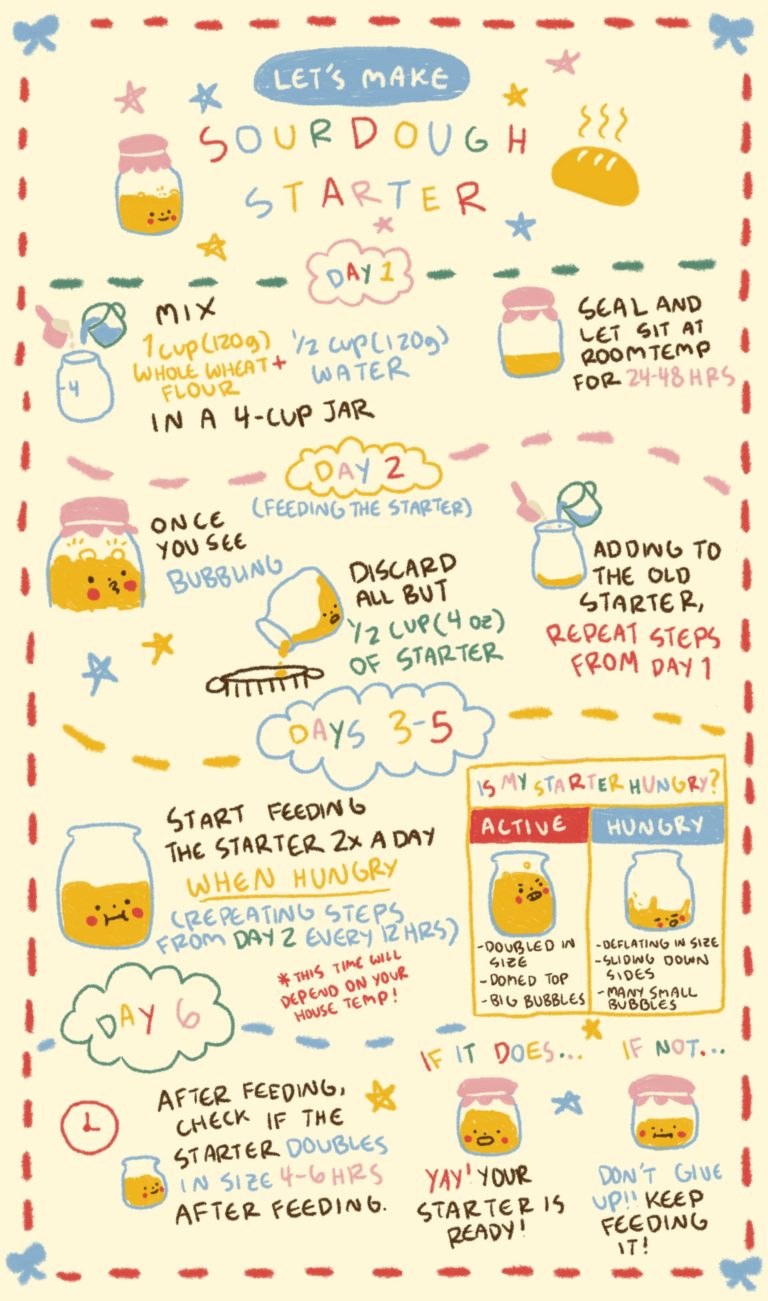 LET'S MAKE
SOURDOUGH
STARTER
DAY 1
MIX
1 CUP (120g)
WHOLE WHEAT +
FLOUR
1/2 CUP (120g)
WATER
IN A 4-CUP JAR
-4
SEAL AND
LET SIT AT
ROOMTEMP
FOR 24-48 HRS
DAY 2
(FEEDING THE STARTER)
ONCE
YOU SEE
BUBBLING
DISCARD
ALL BUT
1/2 CUP (4 OZ)
OF STARTER
ADDING TO
THE OLD
STARTER,
REPEAT STEPS
FROM DAY 1
DAYS 3-5
START FEEDING
THE STARTER 2X A DAY
WHEN HUNGRY
(REPEATING STEPS
FROM DAY 2 EVERY 12 HRS)
*THIS TIME WILL
DEPEND ON YOUR
HOUSE TEMP!
IS MY STARTER HUNGRY?
ACTIVE
-DOUBLED IN
SIZE
-DOMED TOP
-BIG BUBBLES
HUNGRY
-DEFLATING IN SIZE
-SLIDING DOWN
SIDES
-MANY SMALL
BUBBLES
DAY 6
AFTER FEEDING,
CHECK IF THE
STARTER DOUBLES
IN SIZE 4-6 HRS
AFTER FEEDING.
IF IT DOES...
YAY! YOUR
STARTER IS
READY!
IF NOT...
DON'T GIVE
UP!! KEEP
FEEDING
IT!